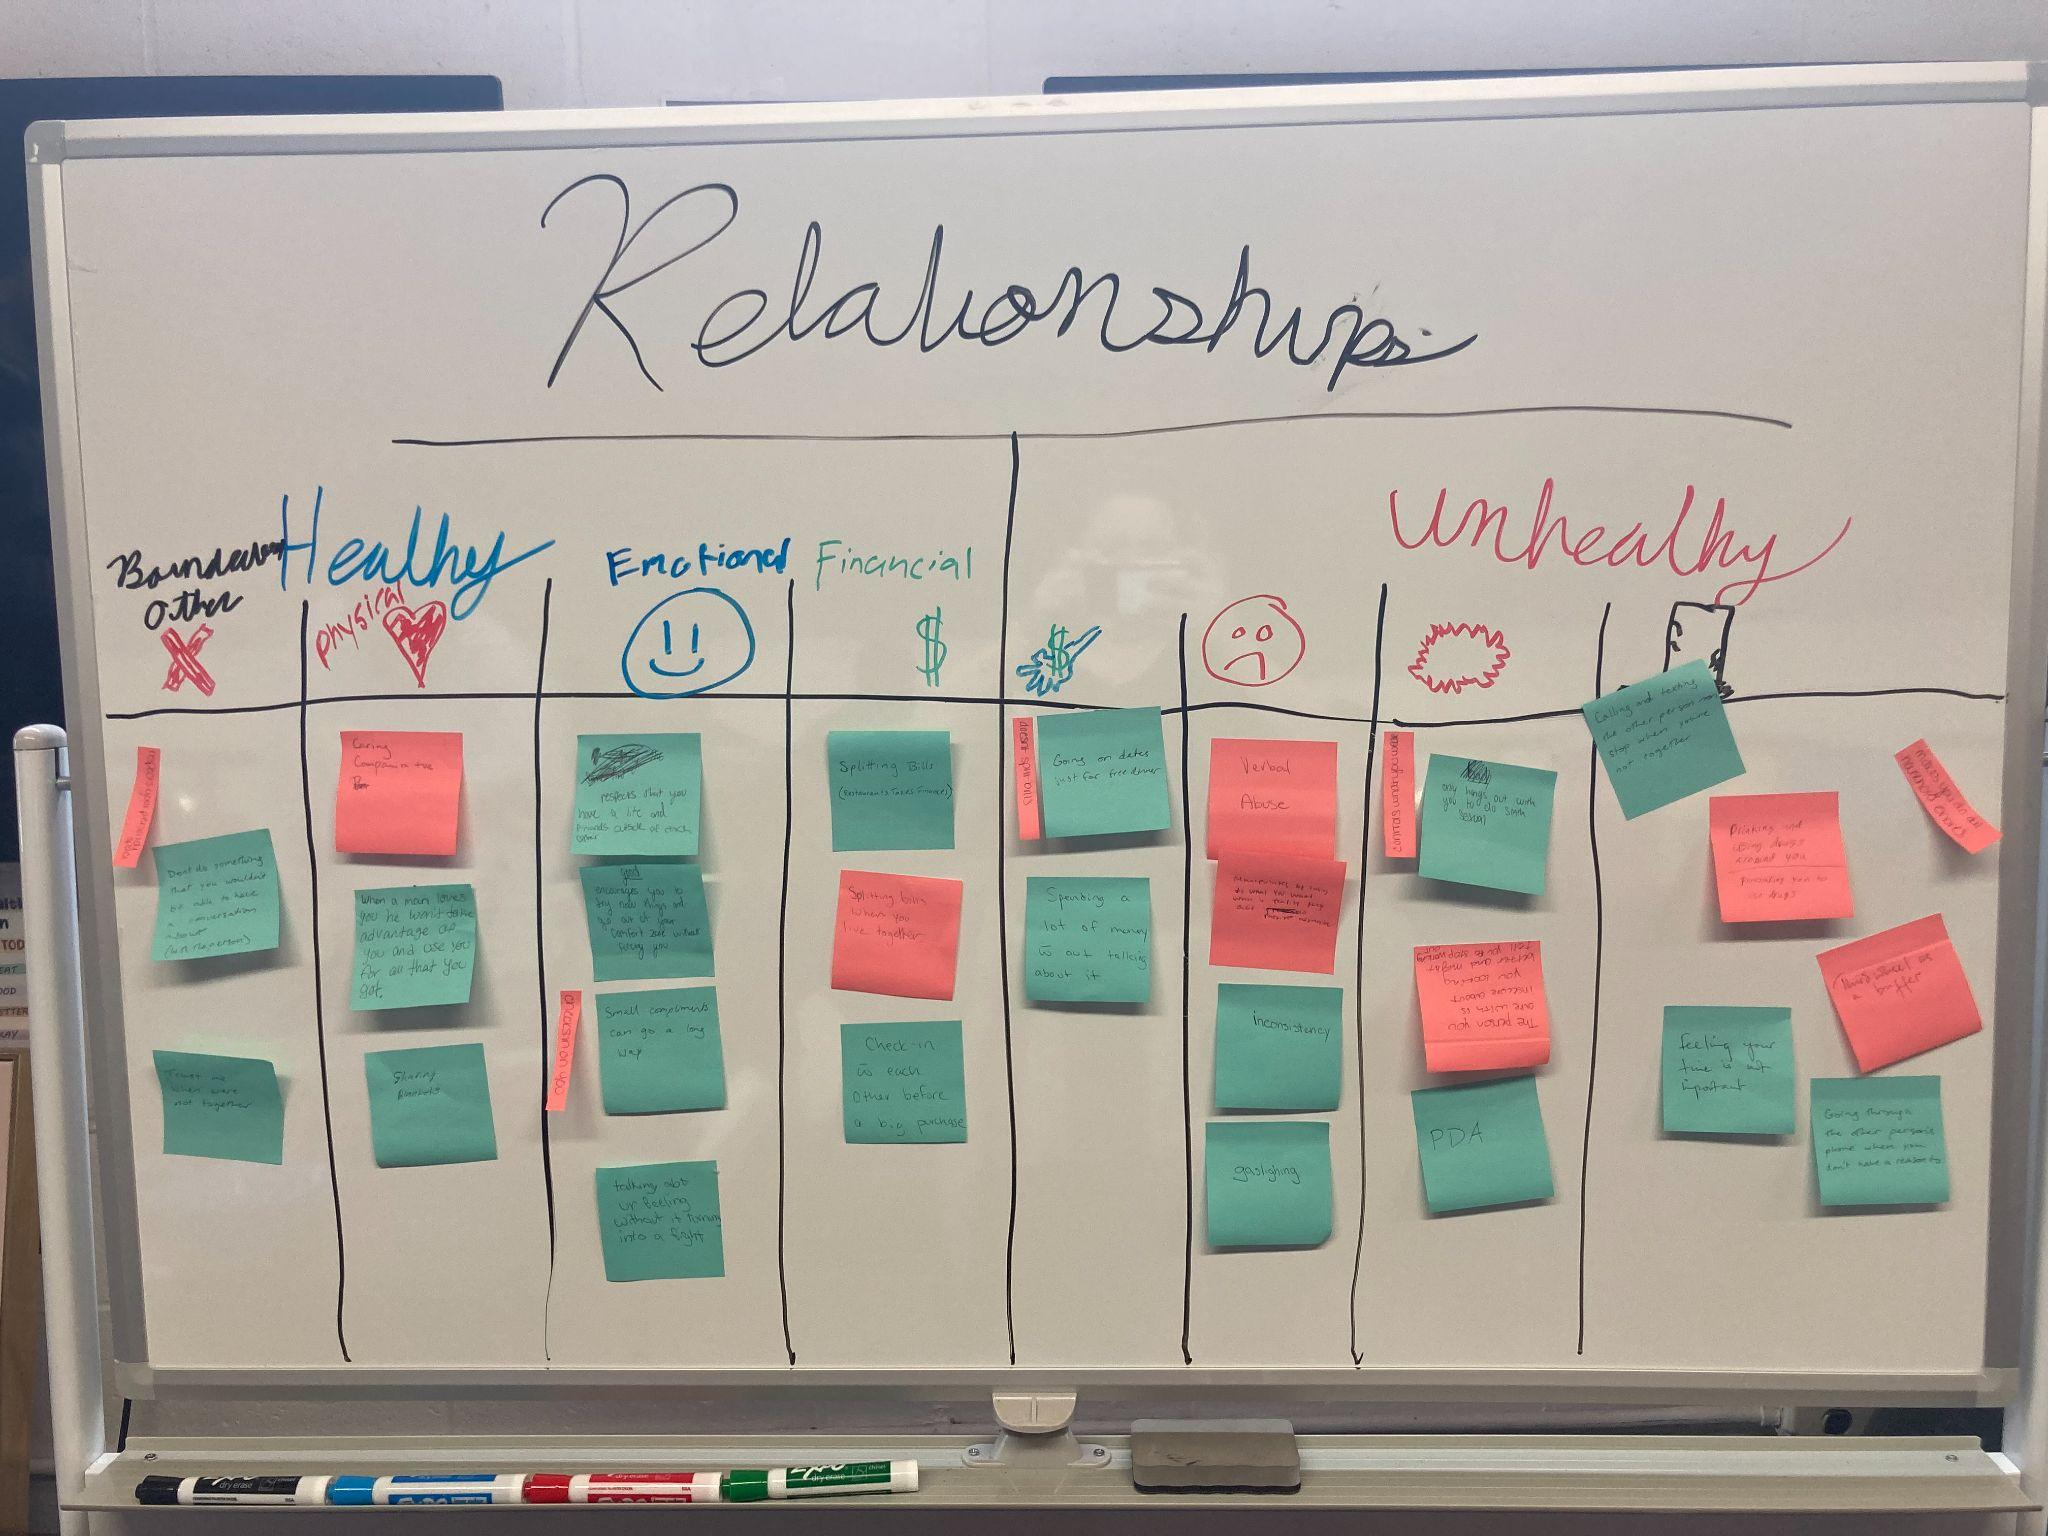 Relationships
Healthy
Unhealthy
Boundaries
Other
Physical
Emotional
Financial
$
$
Dont do something
that you wouldn't
be able to have
a conversation
about
(in person)
Trust me
when were
not together
Caring
When a man loves
you he won't take
advantage of
you and use you
for all that you
got.
Sharing
respects that you
have a life and
friends outside of each
other
good
encourages you to
try new things and
go out of your
comfort zone without
forcing you
Small compliments
can go a long
way
checks in on you
talking abt
ur feeling
without it turning
into a fight
Splitting Bills
(Restaurants Takes Finances)
Splitting bills
when you
live together
Check-in
w each
other before
a big purchase
doesnt split bills
Going on dates
just for free dinner
Spending a
lot of money
w out talking
about it
Verbal
Abuse
inconsistency
gaslighing
only hangs out with
you to do smth
sexual
The person you
are with is
insecure about
you looking
better and might
tell you to stop working
out
PDA
Calling and texting
the other person non
stop when you're
not together
Drinking and
using drugs
around you
pressuring you to
use drugs
as
a buffer
feeling your
time is not
important
Going through
the other person's
phone when you
don't have a reason to
EXPO
dry erase
dry erase
dry erase